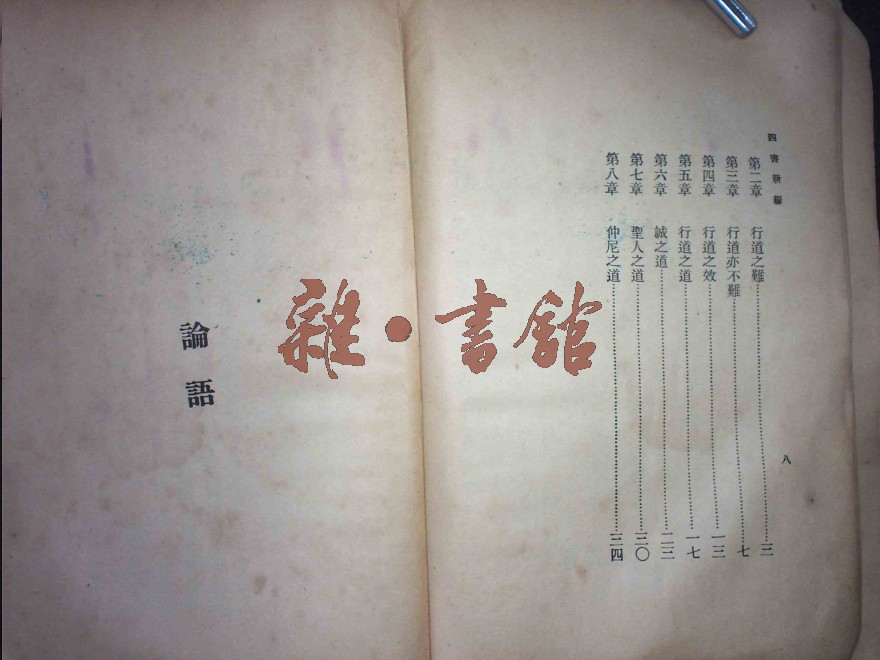 四書新編
第二章 行道之難……三
第三章 行道亦不難……七
第四章 行道之效……一三
第五章 行道之道……一七
第六章 誠之道……二三
第七章 聖人之道……三〇
第八章 仲尼之道……三四
八
論語
雜·書館